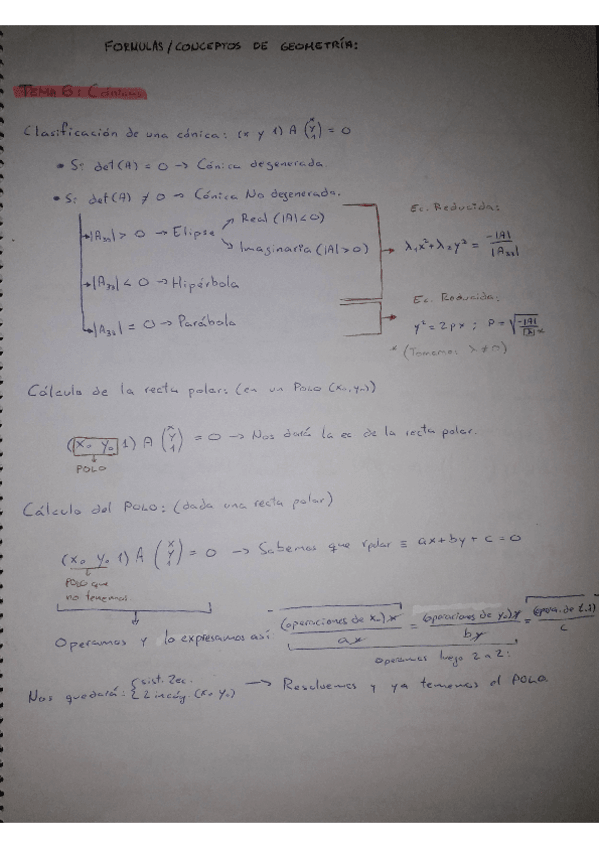 FORMULAS/CONCEPTOS DE GEOMETRÍA:
TEMA 6: Cónicas
Clasificación de una cónica: (x y 1) A (x y 1) = 0
• Si det(A) = 0 → Cónica degenerada.
• Si det(A) ≠ 0 → Cónica No degenerada.
→ |A₃₃| > 0 → Elipse → Real (|A| < 0)
→ Imaginaria (|A| > 0)
→ |A₃₃| < 0 → Hipérbola
→ |A₃₃| = 0 → Parábola
Ec. Reducida:
λ₁x² + λ₂y² = -|A| / |A₃₃|
Ec. Reducida:
y² = 2px ; p = √(-|A| / λ³) *
* (Tomemos λ ≠ 0)
Cálculo de la recta polar: (en un Polo (x₀,y₀))
(x₀ y₀ 1) A (x y 1) = 0 → Nos dará la ec de la recta polar.
POLO
Cálculo del POLO: (dada una recta polar)
(x₀ y₀ 1) A (x y 1) = 0 → Sabemos que rpolar ≡ ax + by + c = 0
POLO que
no tenemos
Operamos y lo expresamos así (operaciones de x₀).x / ax = (operaciones de y₀).y / by = (opera. de 1.1) / c
Operamos luego 2 a 2:
Nos quedará: { sist. 2ec. 2 incóg (x₀ y₀) → Resolvemos y ya tenemos el POLO